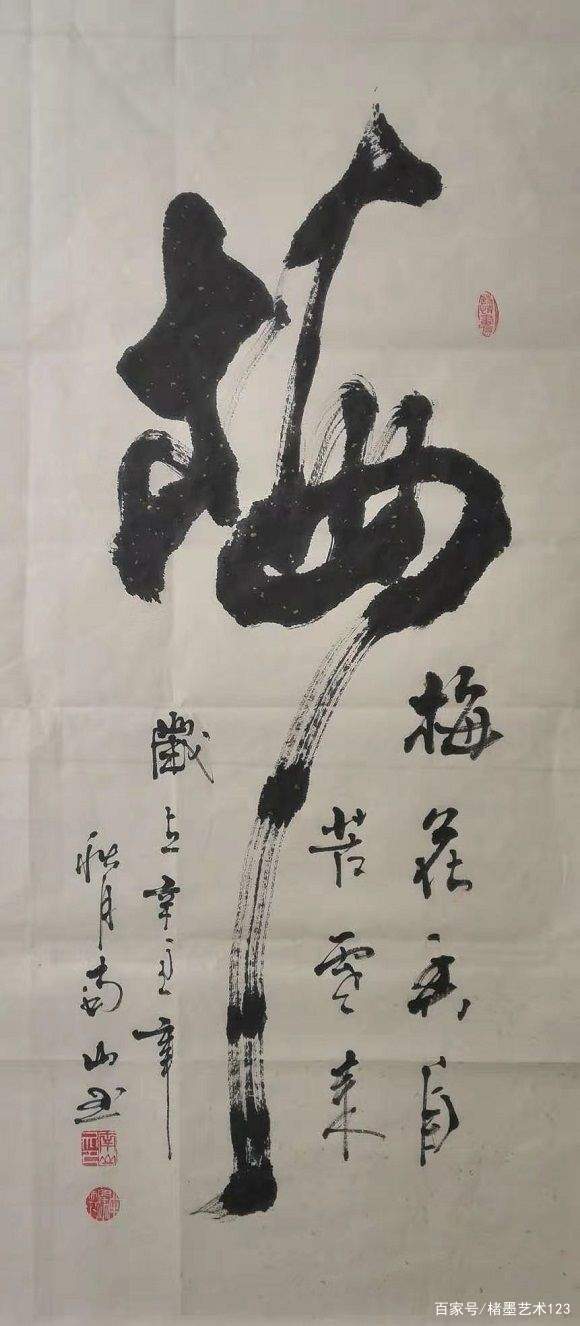 梅
梅花香自
苦寒来
歲在辛丑年
秋月南山书
百家号/楮墨艺术123